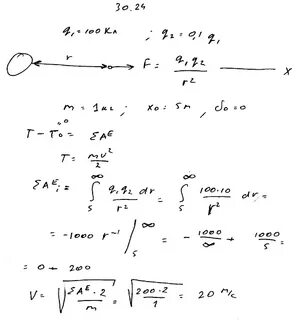 30.24
q₁ = 100 Кл ; q₂ = 0,1 q₁
r F = q₁q₂/r² x
m = 1 кг ; x₀ = 5м , v₀ = 0
T - T₀⁼⁰ = ΣAᴱ
T = mv²/2
ΣAᴱᵢ = ∫₅^∞ q₁q₂ dr/r² = ∫₅^∞ 100·10/r² dr =
= -1000 r⁻¹ /₅^∞ = - 1000/∞ + 1000/5 =
= 0 + 200
V = √(ΣAᴱ·2/m) = √(200·2/1) = 20 м/с